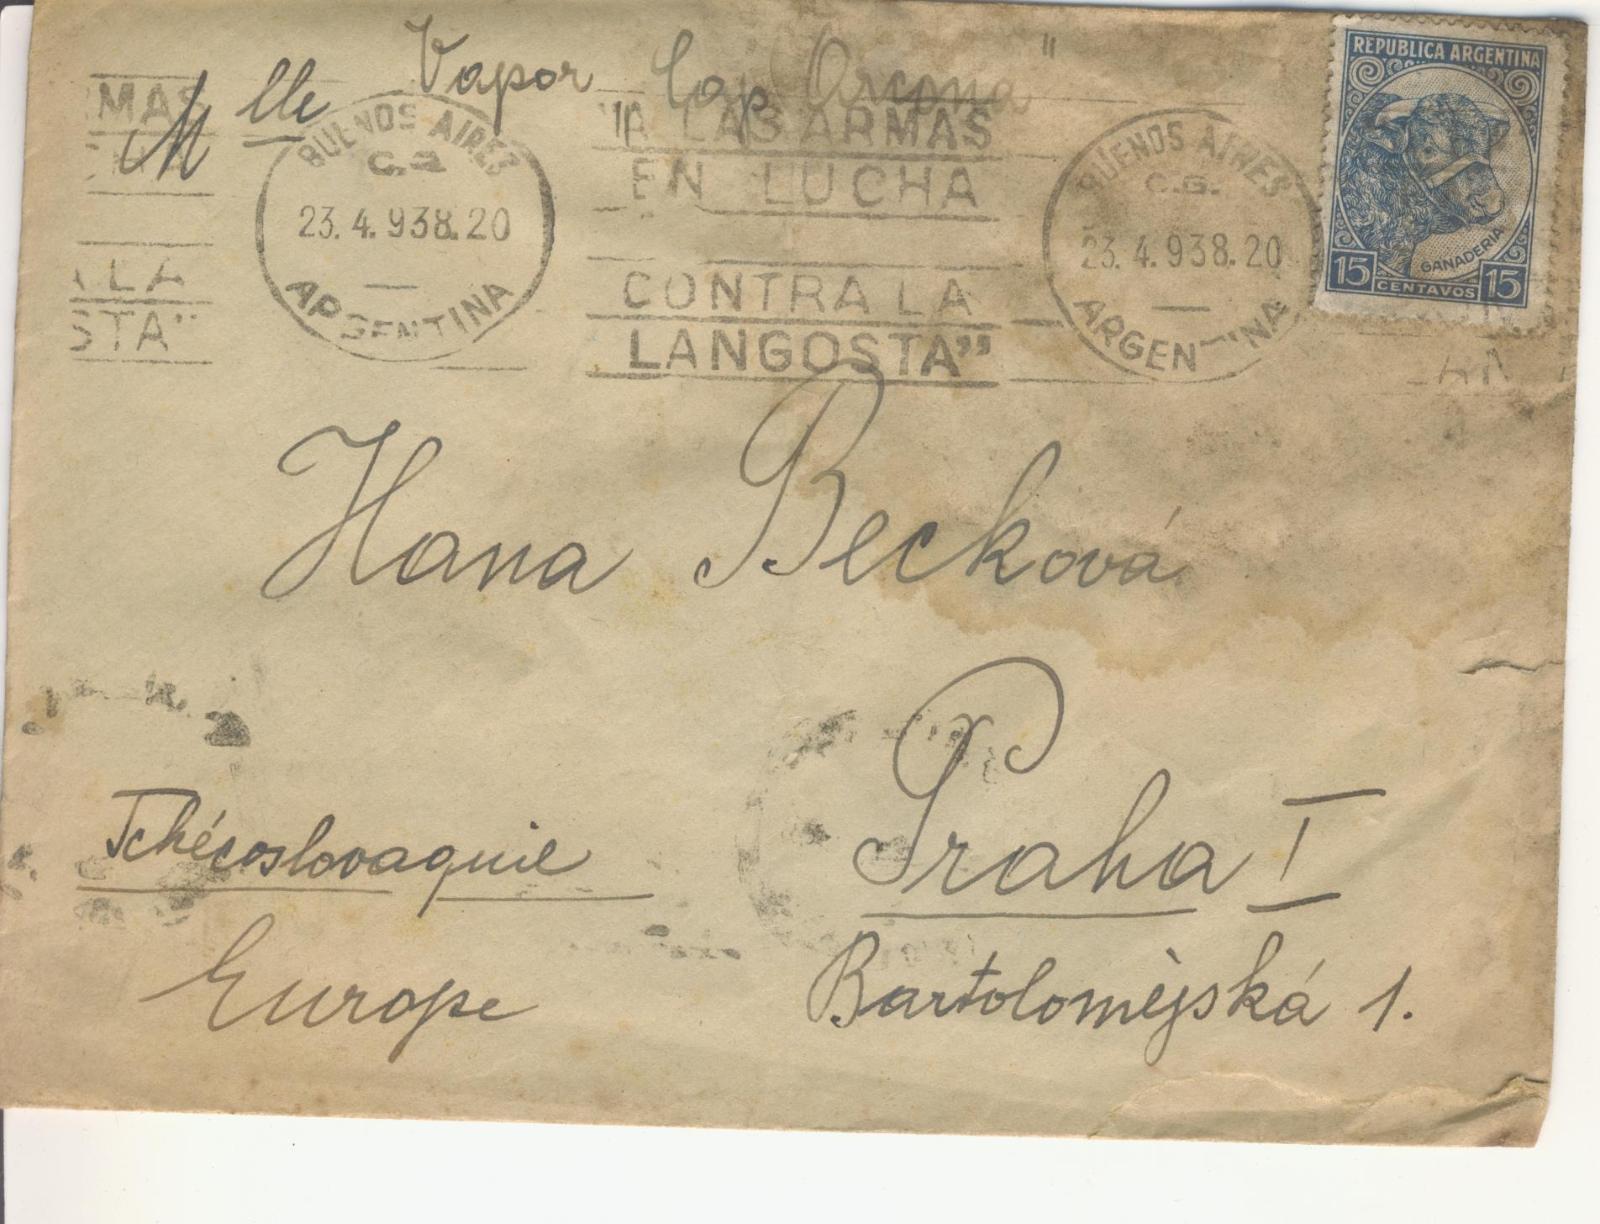 Vapor "Cap Arcona"
Mlle
REPUBLICA ARGENTINA
GANADERIA
15 CENTAVOS 15
MAS
"A LAS ARMAS
EN LUCHA
CONTRA LA
LANGOSTA"
A LA
STA"
BUENOS AIRES
23.4.938.20
ARGENTINA
BUENOS AIRES
23.4.938.20
ARGENTINA
Hana Becková
Praha I
Tchécoslovaquie
Europe
Bartolomějská 1.